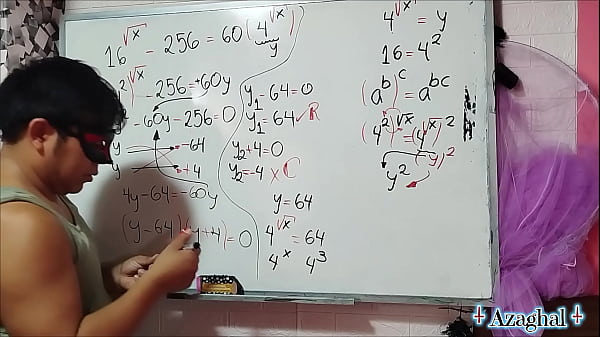 16^√x - 256 = 60(4^√x)
y
2)^√x - 256 = +60y
- 60y - 256 = 0
y -64
y +4
4y - 64 = -60y
(y - 64)(y + 4) = 0
y₁ - 64 = 0
y₁ = 64 ✓ R
y₂ + 4 = 0
y₂ = -4 × C
y = 64
4^√x = 64
4^x 4^3
4^√x = y
16 = 4^2
(a^b)^c = a^bc
(4^2)^√x = (4^√x)^2
(y)^2
y^2
Azaghal